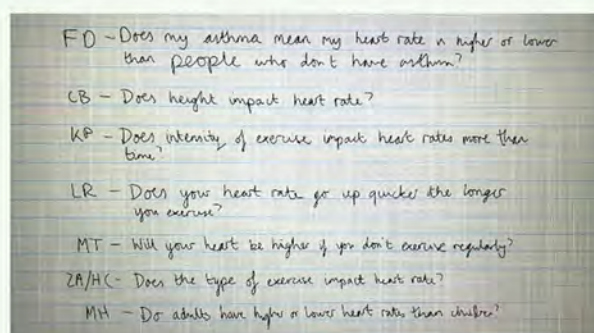 FD - Does my asthma mean my heart rate is higher or lower
than people who don't have asthma?
CB - Does height impact heart rate?
KP - Does intensity of exercise impact heart rates more than
time?
LR - Does your heart rate go up quicker the longer
you exercise?
MT - Will your heart be higher if you don't exercise regularly?
ZA/HC - Does the type of exercise impact heart rate?
MH - Do adults have higher or lower heart rates than children?